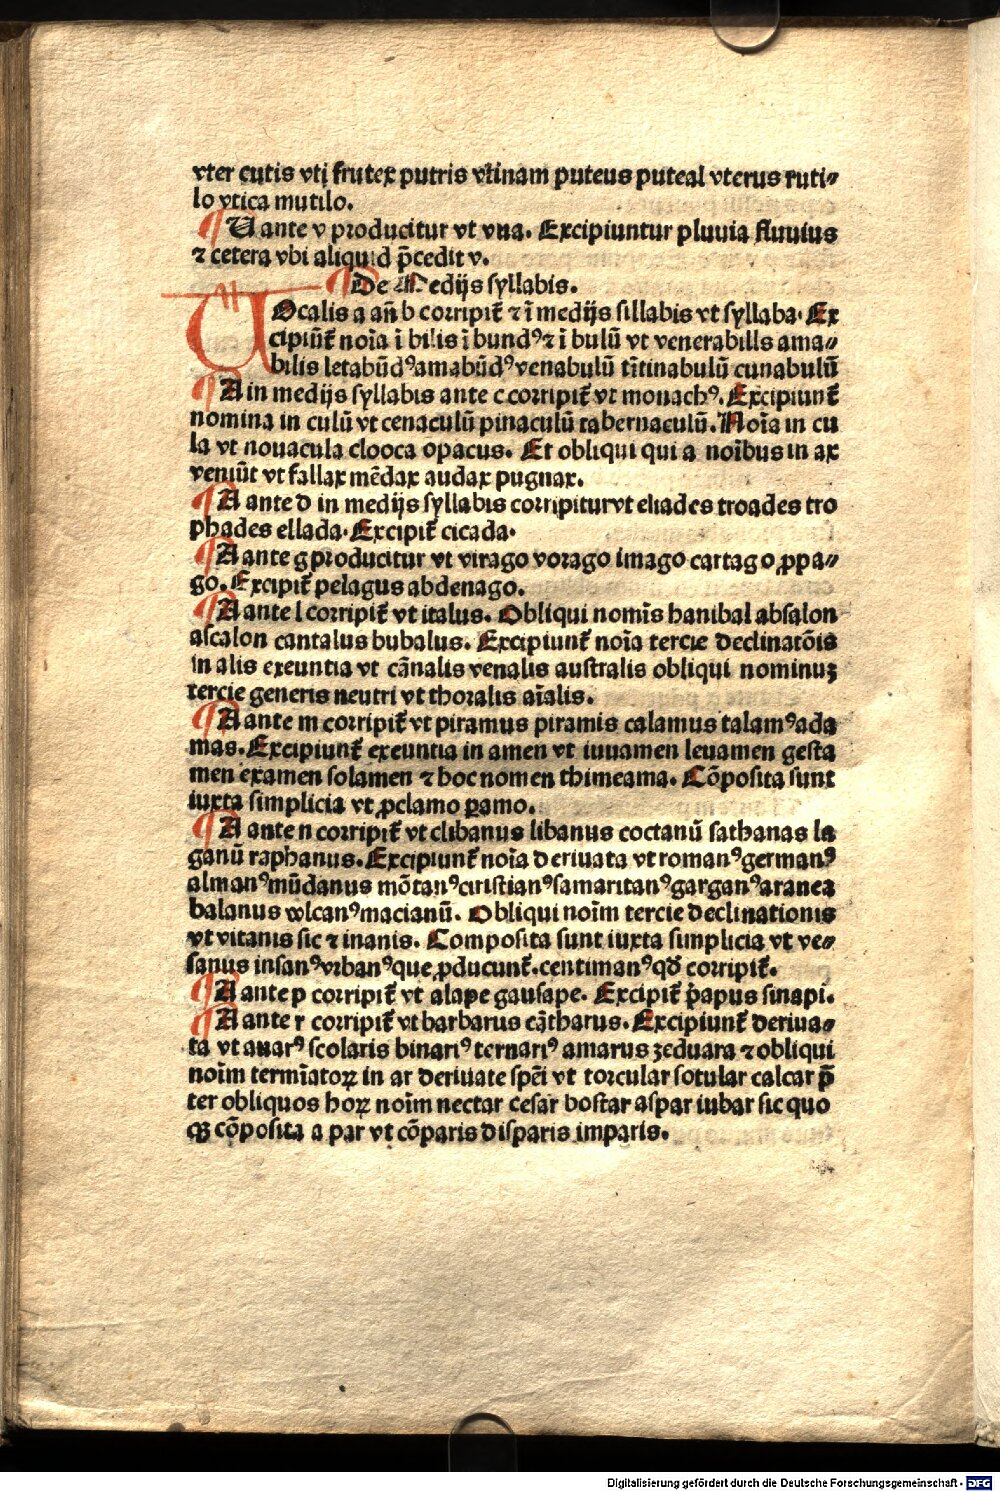 vter cutis vti frutex putris vtinam puteus puteal vterus ruti⸗
lo vtica mutilo.
¶ U ante v producitur vt vna. Excipiuntur pluuia fluuius
⁊ cetera vbi aliquid p̄cedit v.
¶ De Medijs syllabis.
VOcalis a an̄ b corripit᷑ ⁊ ī medijs sillabis vt syllaba. Ex
cipiūt᷑ noīa ī bilis ī bundꝰ ⁊ ī bulū vt venerabills ama⸗
bilis letabūdꝰ amabūdꝰ venabulū tītinabulū cunabulū
¶ A in medijs syllabis ante c corripit᷑ vt monachꝰ. Excipiunt᷑
nomina in culū vt cenaculū pinaculū tabernaculū. Noīa in cu
la vt nouacula clooca opacus. Et obliqui qui a noībus in ax
veniūt vt fallax mēdax audax pugnax.
¶ A ante d in medijs syllabis corripitur vt eliades troades tro
phades ellada. Excipit᷑ cicada.
¶ A ante g producitur vt virago vorago imago cartago ꝓpa⸗
go. Excipit᷑ pelagus abdenago.
¶ A ante l corripit᷑ vt italus. Obliqui nomīs hanibal absalon
ascalon cantalus bubalus. Excipiunt᷑ noīa tercie declinatōis
in alis exeuntia vt cānalis venalis australis obliqui nominuꝫ
tercie generis neutri vt thoralis aīalis.
¶ A ante m corripit᷑ vt piramus piramis calamus talamꝰ ada
mas. Excipiunt᷑ exeuntia in amen vt iuuamen leuamen gesta
men examen solamen ⁊ hoc nomen thimeama. Cōposita sunt
iuxta simplicia vt ꝓclamo ꝑamo.
¶ A ante n corripit᷑ vt clibanus libanus coctanū sathanas la
ganū raphanus. Excipiunt᷑ noīa deriuata vt romanꝰ germanꝰ
almanꝰ mūdanus mōtanꝰ cristianꝰ samaritanꝰ garganꝰ aranea
balanus wlcanꝰ macianū. Obliqui noīm tercie declinationis
vt vitanis sic ⁊ inanis. Composita sunt iuxta simplicia vt ve⸗
sanus insanꝰ vrbanꝰ que ꝓducunt᷑. centimanꝰ qd̄ corripit᷑.
¶ A ante p corripit᷑ vt alape gausape. Excipit᷑ p̄apus sinapi.
¶ A ante r corripit᷑ vt barbarus cātharus. Excipiunt᷑ deriua⸗
ta vt auarꝰ scolaris binariꝰ ternariꝰ amarus zeduara ⁊ obliqui
noīm termīatoꝝ in ar deriuate spēi vt torcular sotular calcar p̄
ter obliquos hoꝝ noīm nectar cesar bostar aspar iubar sic quo
qꝫ cōposita a par vt cōparis disparis imparis.
Digitalisierung gefördert durch die Deutsche Forschungsgemeinschaft - DFG